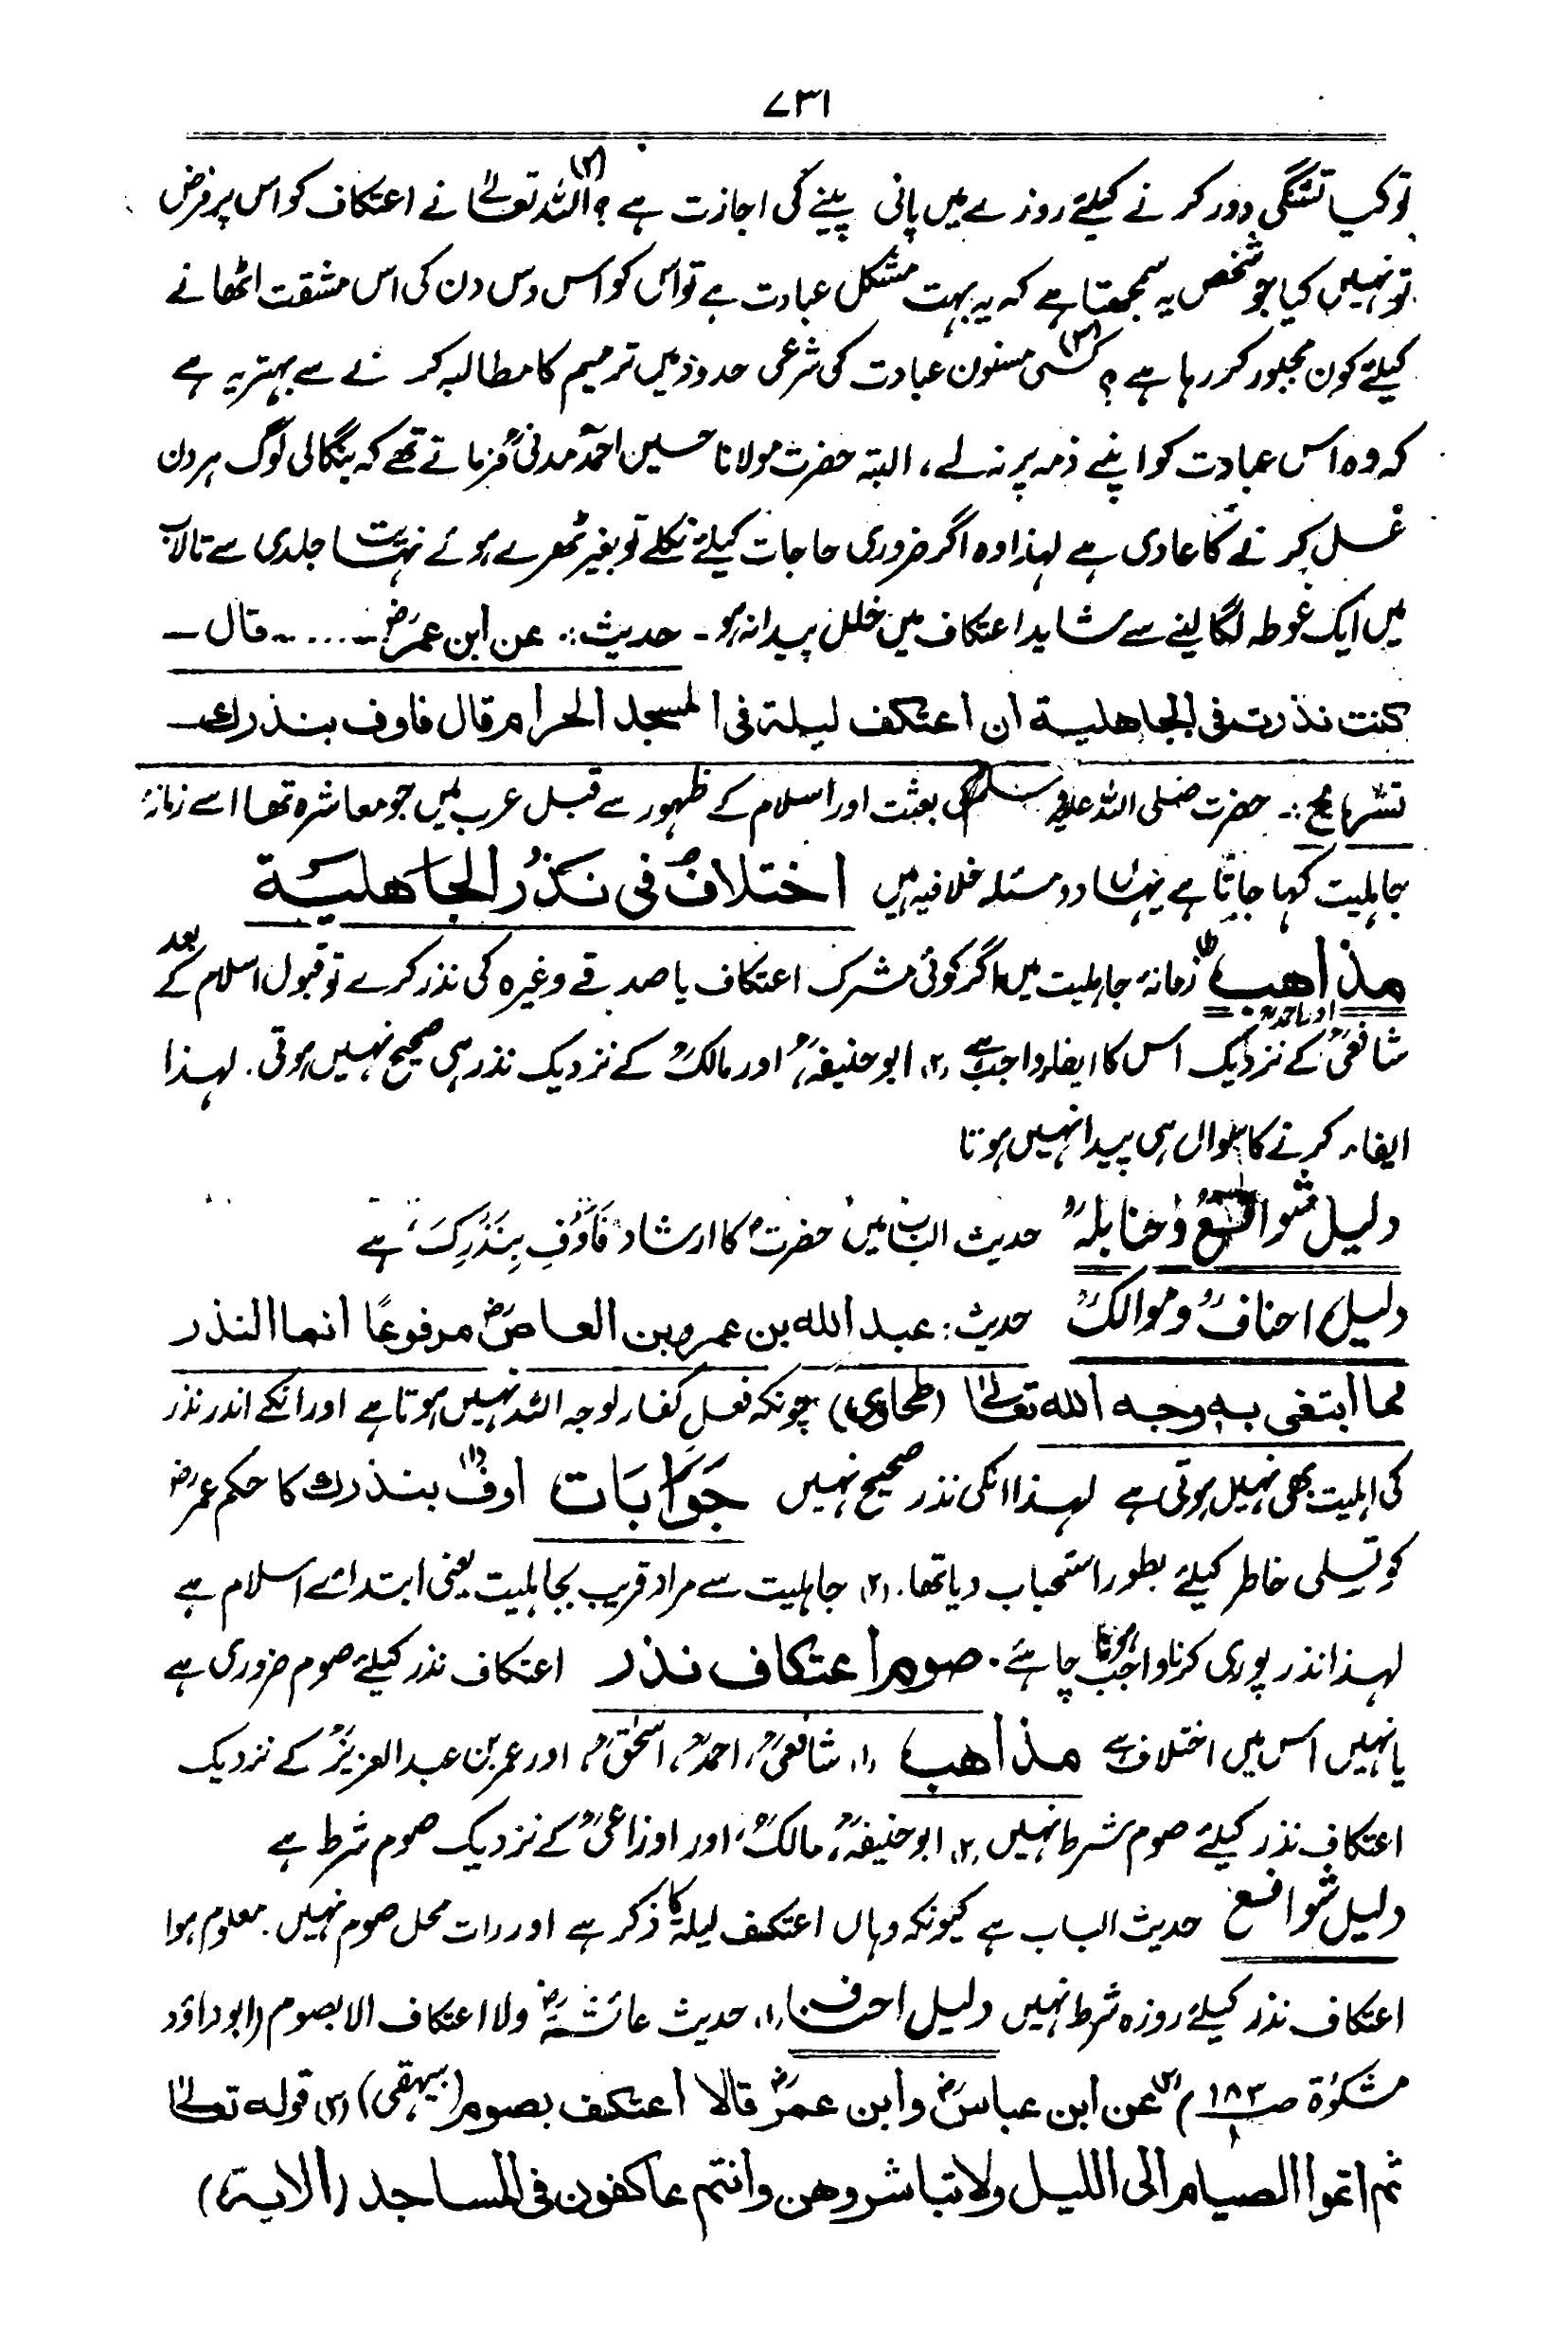 ۷۳۱
تو کیا تشنگی دور کرنے کیلئے روزے میں پانی پینے کی اجازت ہے؟ (۲) اللہ تعالےٰ نے اعتکاف کو اس پر فرض
تو نہیں کیا جو شخص یہ سمجھتا ہے کہ یہ بہت مشکل عبادت ہے تو اس کو اس دس دن کی اس مشقت اٹھانے
کیلئے کون مجبور کر رہا ہے؟ (۳) کسی مسنون عبادت کی شرعی حدود میں ترمیم کا مطالبہ کرنے سے بہتر یہ ہے
کہ وہ اس عبادت کو اپنے ذمہ پر نہ لے، البتہ حضرت مولانا حسین احمد مدنیؒ فرماتے تھے کہ بنگالی لوگ ہر دن
غسل کرنے کا عادی ہے لہذا وہ اگر ضروری حاجات کیلئے نکلے تو بغیر ٹھرے ہوئے نہایت جلدی سے تالاب
میں ایک غوطہ لگا لینے سے شاید اعتکاف میں خلل پیدا نہ ہو۔ حدیث:۔ عن ابن عمرؓ ...... قال
کنت نذرت فی الجاهلیة ان اعتکف لیلة فی المسجد الحرام قال فاوف بنذرک
تشریح:۔ حضرت صلی اللہ علیہ وسلم کی بعثت اور اسلام کے ظہور سے قبل عرب میں جو معاشرہ تھا اسے زمانۂ
جاہلیت کہا جاتا ہے یہاں دو مسئلہ خلافیہ ہیں اختلافٌ فی نذر الجاهلیة
مذاهب (۱) زمانۂ جاہلیت میں اگر کوئی مشرک اعتکاف یا صدقے وغیرہ کی نذر کرے تو قبول اسلام کے بعد
شافعیؒ اور احمدؒ کے نزدیک اس کا ایفاء واجب ہے (۲) ابو حنیفہؒ، اور مالکؒ کے نزدیک نذر ہی صحیح نہیں ہوتی۔ لہذا
ایفاء کرنے کا سوال ہی پیدا نہیں ہوتا
دلیل شوافعؒ وحنابلہؒ حدیث الباب میں حضرتؐ کا ارشاد فَاَوْفِ بِنَذْرِکَ ہے
دلیل احنافؒ وموالکؒ حدیث: عبد الله بن عمرو بن العاصؓ مرفوعًا انما النذر
مما ابتغی به وجه الله تعالےٰ (طحاوی) چونکہ فعل کفار لوجہ اللہ نہیں ہوتا ہے اور انکے اندر نذر
کی اہلیت بھی نہیں ہوتی ہے لہذا انکی نذر صحیح نہیں جَوَابَات (۱) اوف بنذرک کا حکم عمرؓ
کو تسلی خاطر کیلئے بطور استحباب دیا تھا۔ (۲) جاہلیت سے مراد قریب بجاہلیت یعنی ابتدائے اسلام ہے
لہذا نذر پوری کرنا واجب ہونا چاہئے۔ صوم اعتکاف نذر اعتکاف نذر کیلئے صوم ضروری ہے
یا نہیں اس میں اختلاف ہے مذاهب (۱) شافعیؒ، احمدؒ، اسحٰقؒ، اور عمر بن عبد العزیزؒ کے نزدیک
اعتکاف نذر کیلئے صوم شرط نہیں (۲) ابو حنیفہؒ، مالکؒ، اور اوزاعیؒ کے نزدیک صوم شرط ہے
دلیل شوافع حدیث الباب ہے کیونکہ وہاں اعتکف لیلة کا ذکر ہے اور رات محل صوم نہیں۔ معلوم ہوا
اعتکاف نذر کیلئے روزہ شرط نہیں دلیل احناف (۱) حدیث عائشہؓ ولا اعتکاف الا بصوم (ابو داؤد
مشکوٰة صـ ۱۸۳/۱) (۲) عن ابن عباسؓ وابن عمرؓ قالا اعتکف بصوم (بیہقی) (۳) قوله تعالےٰ
ثم اتموا الصیام الی اللیل ولا تباشروهن وانتم عاکفون فی المساجد (الایة)